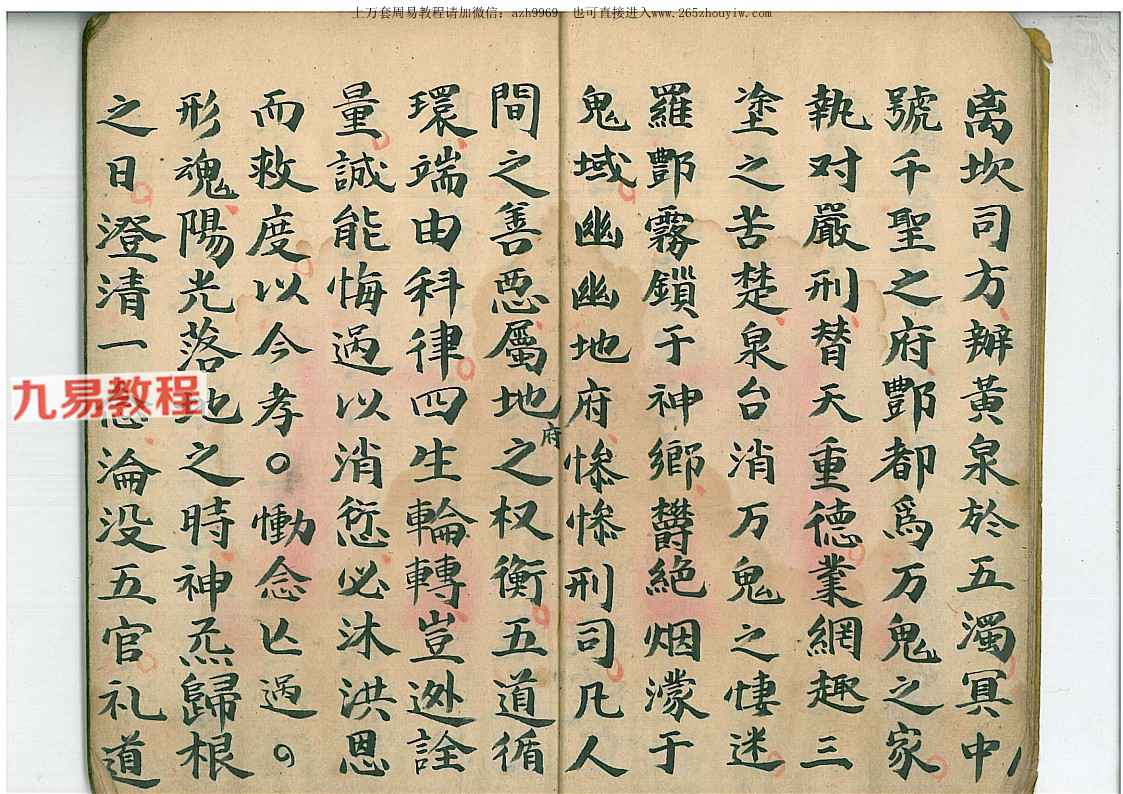 上万套周易教程请加微信:azh9969 也可直接进入www.265zhouyiw.com
离坎司方辦黃泉於五濁冥中
號千聖之府酆都爲万鬼之家
執对嚴刑替天重德業網趣三
塗之苦楚泉台消万鬼之悽迷
羅酆霧鎖于神鄉欝絶烟濛于
鬼域幽幽地府惨惨刑司凡人
間之善惡屬地府之权衡五道循
環端由科律四生輪轉豈逃詮
量誠能悔過以消愆必沐洪恩
而救度以今孝○慟念亡過○
形魂陽光落地之時神炁歸根
之日澄清一念淪没五官礼道
九易教程